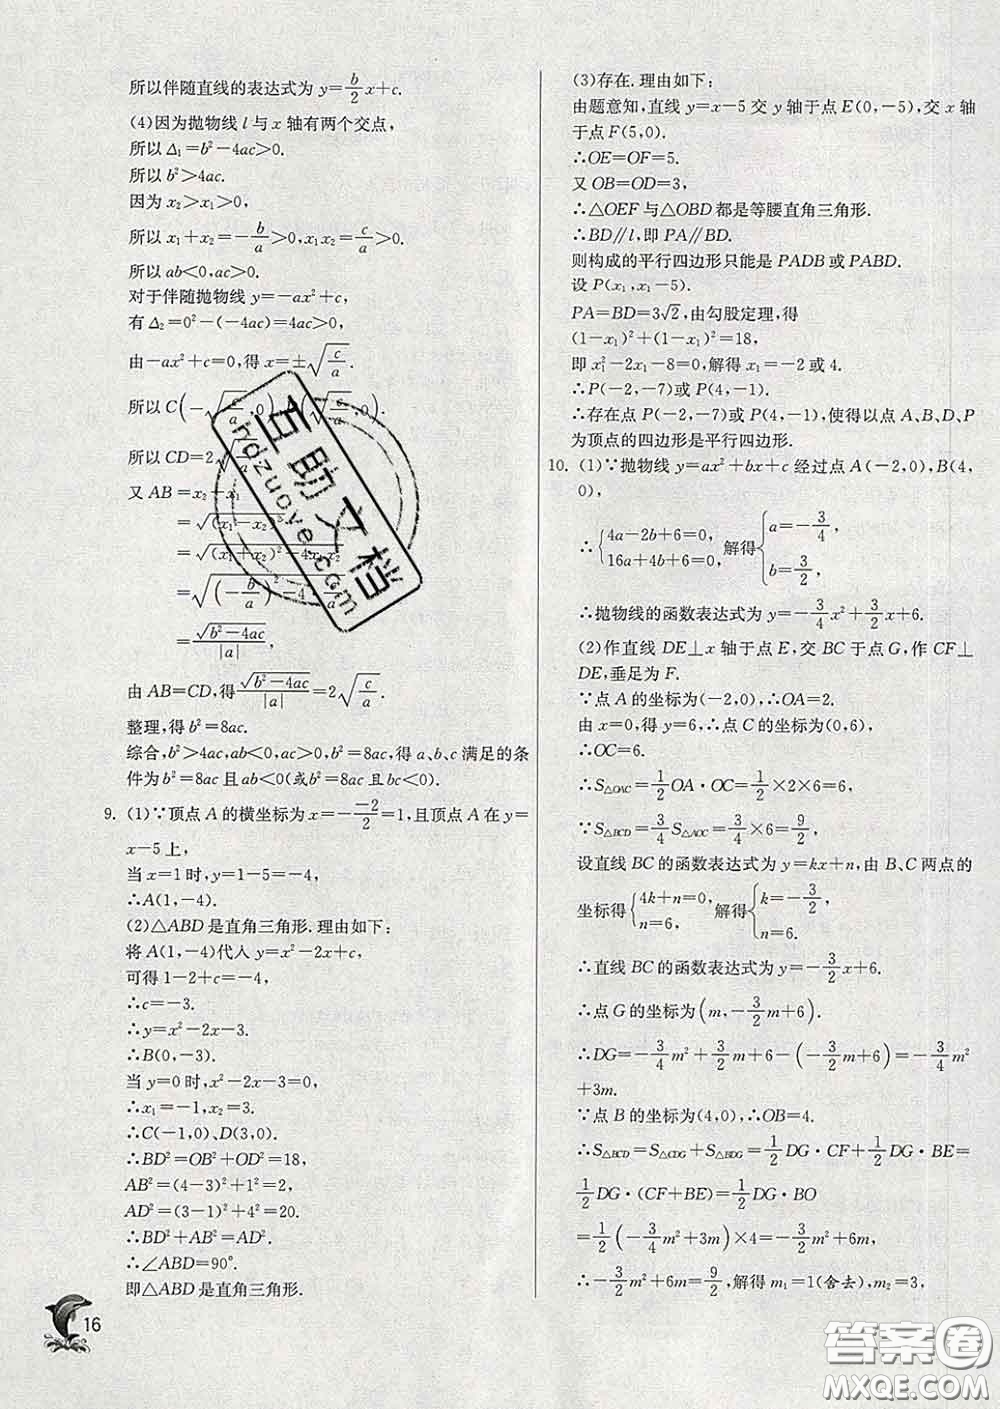 所以伴随直线的表达式为 y=b/2 x+c.
(4)因为抛物线 l 与 x 轴有两个交点，
所以 Δ₁=b²−4ac>0.
所以 b²>4ac.
因为 x₂>x₁>0，
所以 x₁+x₂=−b/a>0,x₁x₂=c/a>0.
所以 ab<0,ac>0.
对于伴随抛物线 y=−ax²+c，
有 Δ₂=0²−(−4ac)=4ac>0，
由−ax²+c=0,得 x=±√(c/a).
所以 C(−√(c/a),0) (√(c/a),0).
所以 CD=2√
又 AB=x₂−x₁
=√(x₁−x₂)²
=√((x₁+x₂)²−4x₁x₂)
=√((−b/a)²−4·c/a)
=√(b²−4ac)/|a|，
由 AB=CD,得 √(b²−4ac)/|a|=2√(c/a).
整理,得 b²=8ac.
综合,b²>4ac,ab<0,ac>0,b²=8ac,得 a、b、c 满足的条
件为 b²=8ac 且 ab<0(或 b²=8ac 且 bc<0).
9. (1)∵顶点 A 的横坐标为 x=−(−2)/2=1,且顶点 A 在 y=
x−5 上，
当 x=1 时,y=1−5=−4，
∴A(1,−4).
(2)△ABD 是直角三角形.理由如下：
将 A(1,−4)代入 y=x²−2x+c，
可得 1−2+c=−4，
∴c=−3.
∴y=x²−2x−3.
∴B(0,−3).
当 y=0 时,x²−2x−3=0，
∴x₁=−1,x₂=3.
∴C(−1,0)、D(3,0).
∴BD²=OB²+OD²=18，
AB²=(4−3)²+1²=2，
AD²=(3−1)²+4²=20.
∴BD²+AB²=AD².
∴∠ABD=90°.
即△ABD 是直角三角形.
(3)存在.理由如下：
由题意知,直线 y=x−5 交 y 轴于点 E(0,−5),交 x 轴
于点 F(5,0).
∴OE=OF=5.
又 OB=OD=3，
∴△OEF 与△OBD 都是等腰直角三角形.
∴BD∥l,即 PA∥BD.
则构成的平行四边形只能是 PADB 或 PABD.
设 P(x₁,x₁−5).
PA=BD=3√2,由勾股定理,得
(1−x₁)²+(1−x₁)²=18，
即 x₁²−2x₁−8=0,解得 x₁=−2 或 4.
∴P(−2,−7)或 P(4,−1).
∴存在点 P(−2,−7)或 P(4,−1),使得以点 A、B、D、P
为顶点的四边形是平行四边形.
10. (1)∵抛物线 y=ax²+bx+c 经过点 A(−2,0),B(4,
0)，
∴{4a−2b+6=0, 16a+4b+6=0, 解得{a=−3/4, b=3/2,
∴抛物线的函数表达式为 y=−3/4 x²+3/2 x+6.
(2)作直线 DE⊥x 轴于点 E,交 BC 于点 G,作 CF⊥
DE,垂足为 F.
∵点 A 的坐标为(−2,0),∴OA=2.
由 x=0,得 y=6,∴点 C 的坐标为(0,6)，
∴OC=6.
∴S△OAC=1/2 OA·OC=1/2×2×6=6.
∵S△BCD=3/4 S△AOC=3/4×6=9/2，
设直线 BC 的函数表达式为 y=kx+n,由 B、C 两点的
坐标得{4k+n=0, n=6. 解得{k=−3/2, n=6.
∴直线 BC 的函数表达式为 y=−3/2 x+6.
∴点 G 的坐标为(m,−3/2 m+6).
∴DG=−3/4 m²+3/2 m+6−(−3/2 m+6)=−3/4 m²
+3m.
∵点 B 的坐标为(4,0),∴OB=4.
∴S△BCD=S△CDG+S△BDG=1/2 DG·CF+1/2 DG·BE=
1/2 DG·(CF+BE)=1/2 DG·BO
=1/2(−3/4 m²+3m)×4=−3/2 m²+6m，
∴−3/2 m²+6m=9/2,解得 m₁=1(舍去),m₂=3，
16
互助文档
hydzuoye.com
答案圈
MXQE.COM